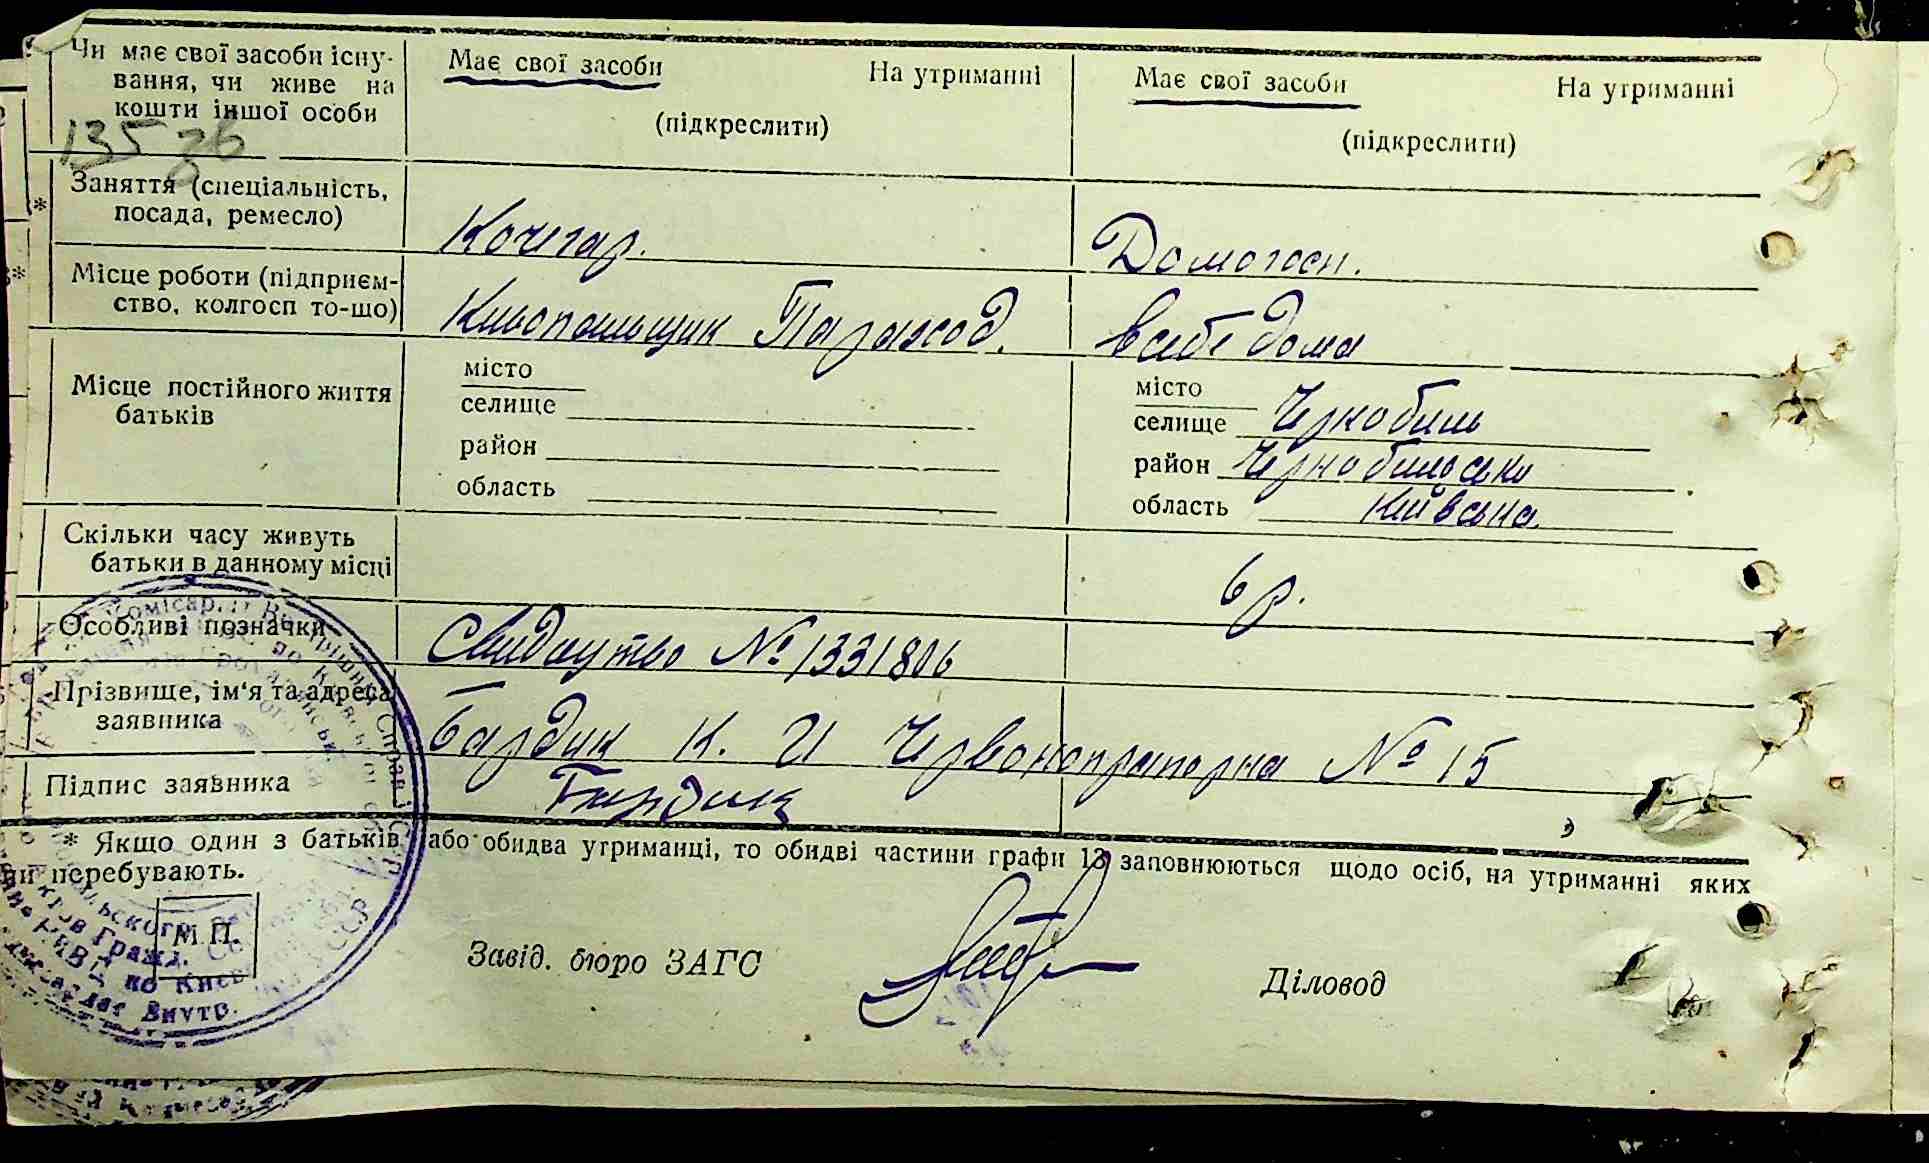 Чи має свої засоби існу-
вання, чи живе на
кошти іншої особи
Має свої засоби На утриманні
(підкреслити)
Має свої засоби На утриманні
(підкреслити)
135 зв
Заняття (спеціальність,
посада, ремесло)
Кочегар.
Домогосп.
Місце роботи (підприєм-
ство, колгосп то-що)
Параход.
в себе дома
Місце постійного життя
батьків
місто
селище
район
область
місто
селище Чернобиль
район Чернобильськи
область Київська.
Скільки часу живуть
батьки в данному місці
6 р.
Особливі позначки
Свидоутво № 1331806
Прізвище, ім'я та адреса
заявника
Бардик К. И Червонопрапорна № 15
Підпис заявника
Бардик
* Якщо один з батьків або обидва утриманці, то обидві частини графи 13 заповнюються щодо осіб, на утриманні яких
перебувають.
М.П.
Завід. бюро ЗАГС
Діловод